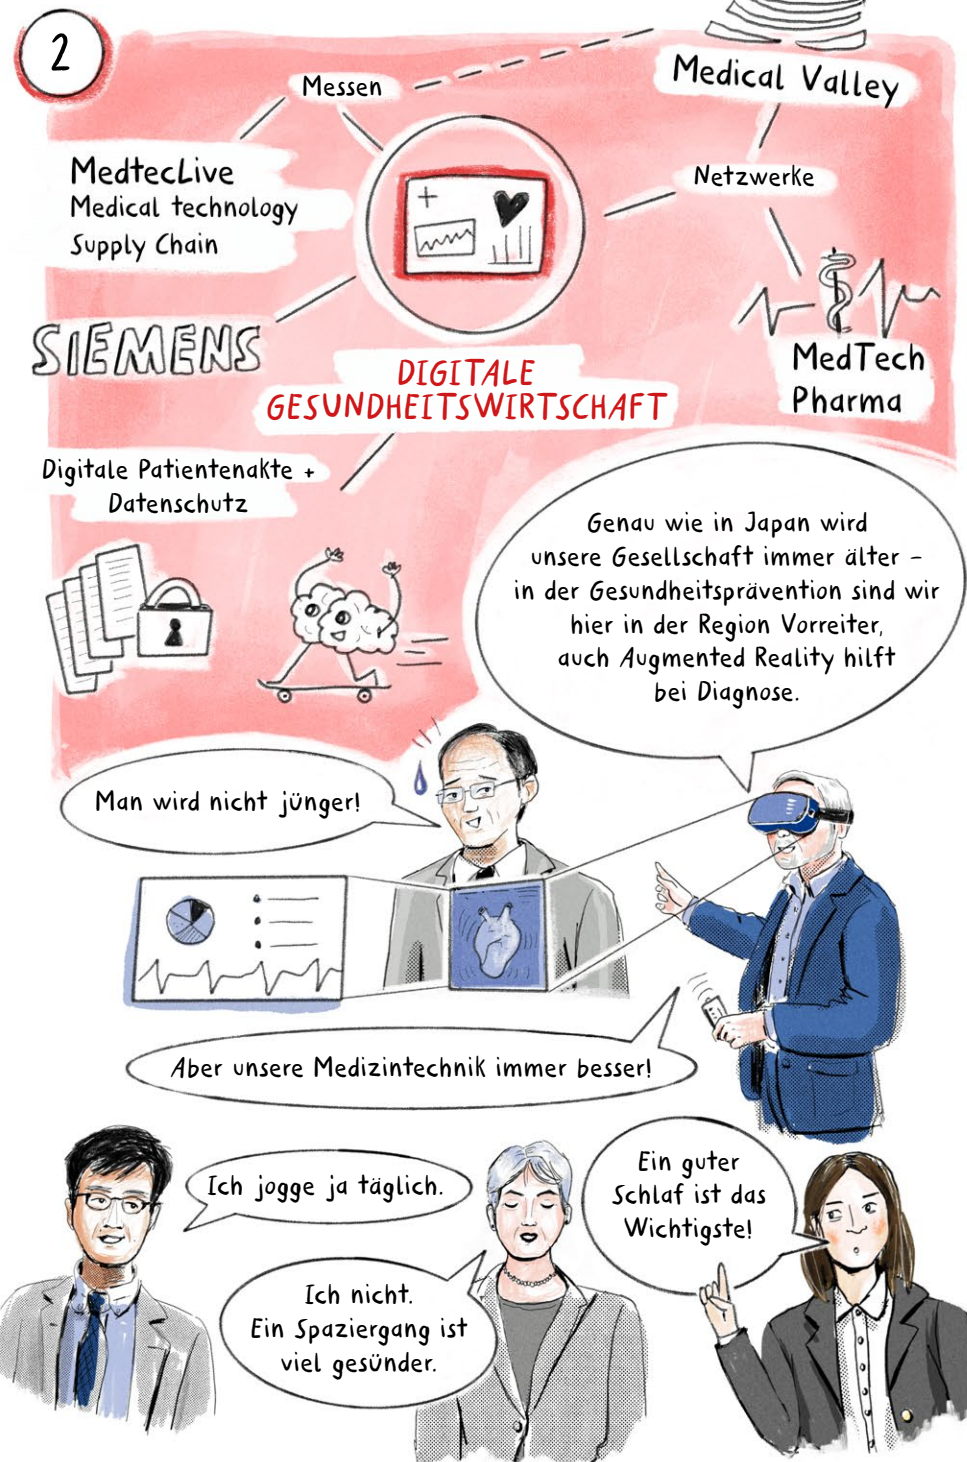 2
Messen
Medical Valley
MedtecLive
Medical technology
Supply Chain
Netzwerke
SIEMENS
MedTech
Pharma
DIGITALE
GESUNDHEITSWIRTSCHAFT
Digitale Patientenakte +
Datenschutz
Genau wie in Japan wird
unsere Gesellschaft immer älter –
in der Gesundheitsprävention sind wir
hier in der Region Vorreiter,
auch Augmented Reality hilft
bei Diagnose.
Man wird nicht jünger!
Aber unsere Medizintechnik immer besser!
Ich jogge ja täglich.
Ein guter
Schlaf ist das
Wichtigste!
Ich nicht.
Ein Spaziergang ist
viel gesünder.